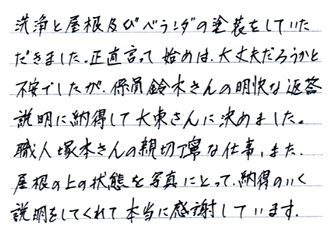 洗浄と屋根及びベランダの塗装をしていた
だきました。正直言って始めは、大丈夫だろうかと
不安でしたが、係員鈴木さんの明快な返答
説明に納得して大東さんに決めました。
職人塚本さんの親切丁寧な仕事、また、
屋根の上の状態を写真にとって、納得のいく
説明をしてくれて本当に感謝しています。